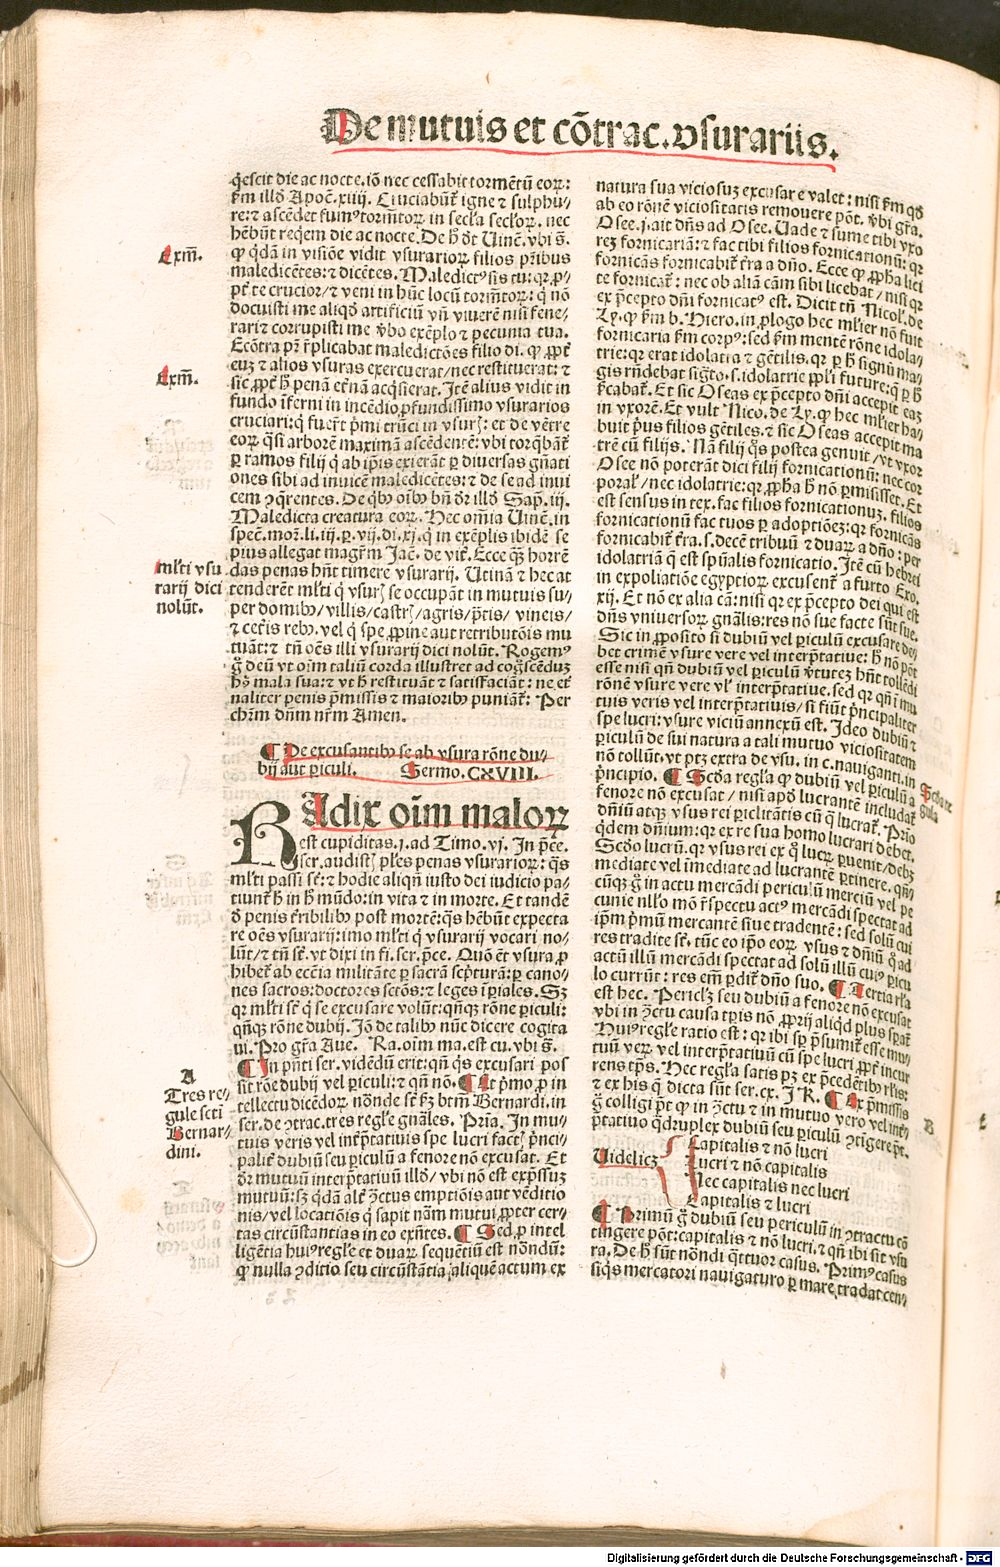 De mutuis et cõtrac. vsurariis.
q̃escit die ac nocte. iõ nec cessabit tormẽtũ eoꝝ:
ẜm illđ Apoč. xiiij. Cruciabũt̃ igne ⁊ sulphu/
re: ⁊ ascẽdet fumꝰ tormẽtoꝝ in secl̃a secl̃oꝝ. nec
hẽbũt req̃em die ac nocte. De h̃ đt Uinẽ. vbi s̃.
Exm̃.
ꝙ q̃dã in visiõe vidit vsurarioꝝ filios pr̃ibus
maledicẽtes: ⁊ dicẽtes. Maledictꝰ sis tu: qꝛ ꝓ/
pt̃ te crucior/ ⁊ veni in hũc locũ tormẽtoꝝ: q̃ nõ
docuisti me aliqđ artificiũ vñ viuerẽ nisi fene/
rari ⁊ corrupisti me v̓bo exẽplo ⁊ pecunia tua.
Ecõtra pr̃ r̃plicabat maledictões filio di. ꝙ ꝓpt̃
euȝ ⁊ alios vsuras exercuerat/ nec restituerat: ⁊
Exm̃.
sic ꝓpt̃ h̃ penã et̃nã acq̃sierat. Itẽ alius vidit in
fundo ĩferni in incẽdio ꝓfundissimo vsurarios
cruciari: q̃ fuer̃t p̃mi trũci in vsurꝭ: et de vẽtre
eoꝝ q̃si arborẽ maximã ascẽdentẽ: vbi torq̃bãt̃
ꝑ ramos filij q̃ ab ip̃is exierãt ꝑ diuersas gñati
ones sibi ad inuicẽ maledicẽtes: ⁊ de se ad inui
cem ꝯq̃rentes. De q̃bꝰ oĩbꝰ bñ đr illđ Sap̃. iij.
Maledicta creatura eoꝝ. Hec om̃ia Uinẽ. in
specỉ. mor̃. li. iij. ꝑ. vij. di. xj. q̃ in exẽplis ibidẽ se
pius allegat magr̃m Jac̃. de vit̃. Ecce q̃ȝ horrẽ
ml̃ti vsu
rarij dici
nolũt.
das penas hñt timere vsurarij. Utinã ⁊ hec at
tenderẽt ml̃ti q̃ vsurꝭ se occupãt in mutuis su/
per domibꝰ/ villis/ castrꝭ/ agris/ p̃tis/ vineis/
⁊ cet̃is rebꝰ. vel q̃ spe ꝓpine aut retributõis mu
tuãt: ⁊ tñ oẽs illi vsurarij dici nolũt. Rogemꝰ
g̃ deũ vt oĩm taliũ corda illustret ad cog̃scẽduȝ
hꝰ mala sua: ⁊ vt h̃ restituãt ⁊ satisfaciãt: ne et̃
naliter penis p̃missis ⁊ maioribꝰ puniãt̃: Per
chr̃m dñm nr̃m Amen.
¶ De excusantibꝰ se ab vsura rõne du/
bij aut ꝑiculi. Sermo. CXVIII.
RAdix oĩm maloꝝ
est cupiditas. j. ad Timo. vj. In p̃ce.
ser. audistꝭ ples penas vsurarioꝝ: q̃s
ml̃ti passi st̃: ⁊ hodie aliqñ iusto dei iudicio pa/
tiunt̃ h̃ in h̃ mũdo: in vita ⁊ in morte. Et tandẽ
đ penis t̃ribilibꝰ post mortẽ: q̃s hẽbũt expecta
re oẽs vsurarij: imo ml̃ti q̃ vsurarij vocari no/
lũt/ ⁊ tñ st̃. vt dixi in fi. ser. p̃ce. Quõ et̃ vsura ꝓ
hibet̃ ab ecc̃ia militãte ꝑ sacrã sc̃pturã: ꝑ cano/
nes sacros: doctores sctõs: ⁊ leges ĩꝑiales. Sȝ
qꝛ ml̃ti st̃ q̃ se excusare volũt: qñqȝ rõne ꝑiculi:
qñqȝ rõne dubij. Jõ de talibꝰ nũc dicere cogita
ui. Pro gr̃a Aue. Ra. oĩm ma. est cu. vbi s̃.
A
Tres re/
gule scti
Bernar/
dini.
¶ In pñti ser. vidẽdũ erit: qñ q̃s excusari pos
sit rõe dubij vel ꝑiculi: ⁊ qñ nõ. ¶ At p̃mo. ꝓ in
tellectu dicẽdoꝝ nõnde st̃ ẜȝ btm̃ Bernardi. in
ser. de ꝯtrac. tres regl̃e gñales. Pria. In mu/
tuis veris vel int̃p̃tatiuis spe lucri factꝭ p̃nci/
palit̃ dubiũ seu ꝑiculũ a fenore nõ excusat. Et
đr mutuũ interp̃tatiuũ illđ/ vbi nõ est exp̃ssuȝ
mutuũ: sȝ q̃dã alt̃ ꝯctus emptiõis aut vẽditio
nis/ vel locatiõis q̃ sapit nãm mutui ꝓpter cer/
tas circũstantias in eo exñtes. ¶ Sed ꝓ intel
ligẽtia huiꝰ regl̃e et duaꝝ sequẽtiũ est nõndũ:
ꝙ nulla ꝯditio seu circũstantia aliquẽ actum ex
natura sua viciosuȝ excusare valet: nisi ẜm qđ
ab eo rõnẽ viciositatis remouere põt. v̓bi gr̃a.
Osee. j. ait dñs ad Osee. Uade ⁊ sume tibi vxo
reȝ fornicariã: ⁊ fac tibi filios fornicationũ: qꝛ
fornicãs fornicabit̃ t̃ra a dño. Ecce ꝙ ꝓph̃a lici
te fornicat̃: nec ob aliã cãm sibi licebat/ nisi qꝛ
ex p̃cepto dñi fornicatꝰ est. Dicit tñ Nicol̃. de
Ly. ꝙ ẜm b. Hiero. in ꝓlogo hec ml̃ier nõ fuit
fornicaria ẜm corpꝰ: sed ẜm mentẽ rõne idola/
trie: qꝛ erat idolatra ⁊ gẽtilis. qꝛ ꝑ h̃ signũ ma/
gis rñdebat sigto. s. idolatrie ppl̃i future: q̃ ꝑ h̃
ẜcabat̃. Et sic Oseas ex p̃cepto dñi accepit eaȝ
in vxorẽ. Et vult Nico. de Ly. ꝙ hec ml̃ier ha/
buit p̃us filios gẽtiles. ⁊ sic Oseas accepit ma
trẽ cũ filijs. Nã filij q̃s postea genuit/ vt vxor
Osee nõ poterãt dici filij fornicationũ: nec cor
poral̃/ nec idolatrie: qꝛ ꝓph̃a h̃ nõ ꝑmisisset. Et
est sensus in tex. fac filios fornicationuȝ. filios
fornicationũ fac tuos ꝑ adoptiõeȝ: qꝛ fornicãs
fornicabit̃ t̃ra. s. decẽ tribuũ ⁊ duaꝝ a dño: per
idolatriã q̃ est sp̃ũalis fornicatio. Itẽ cũ hebrei
in expoliatiõe egyptioꝝ excusent̃ a furto Exo.
xij. Et nõ ex alia cã: nisi qꝛ ex p̃cepto dei qui est
dñs vniuersoꝝ gñalis: res nõ sue facte sũt sue.
Sic in ꝓposito si dubiũ vel ꝑiculũ excusare de/
bet crimẽ vsure vere vel int̃p̃tatiue: h̃ nõ põt
esse nisi qñ dubiũ vel ꝑiculũ v̓tuteȝ hñt tollẽdi
rõnẽ vsure vere vl̓ interp̃tatiue. sed qꝛ qñ ĩ mu
tuis veris vel interp̃tatiuis/ si fiũt p̃ncipaliter
spe lucri: vsure viciũ annexũ est. Ideo dubiũ ⁊
ꝑiculũ de sui natura a tali mutuo viciositatem
nõ tollũt. vt ptȝ extra de vsu. in c. nauiganti. in
Scđa re
gula
p̃ncipio. ¶ Scđa regl̃a ꝙ dubiũ vel ꝑiculũ a
fenore nõ excusat/ nisi apđ lucrantẽ includat̃
dñiũ atqȝ vsus rei ꝑiclitãtis cũ q̃ lucrat̃. Prio
q̃dem dñium: qꝛ ex re sua homo lucrari debet.
Scđo lucrũ. qꝛ vsus rei ex q̃ lucꝝ ꝓuenit/ debȝ
mediate vel ĩmediate ad lucrantẽ ꝑtinere. qñ/
cũqȝ g̃ in actu mercãdi periculũ merciũ vel pe
cunie nll̃o mõ r̃spectu actꝰ mercãdi spectat ad
ip̃m p̃mũ mercantẽ siue tradentẽ: sed solũ cui
res tradite st̃. tũc eo ip̃o eoꝝ vsus ⁊ dñiũ q̃ ad
actũ illũ mercãdi spectat ad solũ illũ cuiꝰ ꝑicu
lo currũt: res em̃ ꝑdit̃ dño suo. ¶ Tertia rl̃a
est hec. Periclꝭ seu dubiũ a fenore nõ excusat
vbi in ꝯctu causa tꝑis nõ ꝓprij aliqđ plus sꝑat̃
Huiꝰ regl̃e ratio est: qꝛ ibi sꝑ p̃sumit̃ esse mu/
tuũ veꝝ vel interp̃tatiuũ cũ spe lucri ꝓpt̃ incur
rens tp̃s. Hec regl̃a satis pȝ ex p̃cedẽtibꝰ rl̃is:
⁊ ex his q̃ dicta sũt ser. cx. J R. ¶ Ex p̃missis
B
g̃ colligi p̃t ꝙ in ꝯctu ⁊ in mutuo vero vel int̃/
p̃tatiuo q̃druplex dubiũ seu ꝑiculũ ꝯtigere p̃t.
Uidelicȝ
Capitalis ⁊ nõ lucri
Lucri ⁊ nõ capitalis
Nec capitalis nec lucri
Capitalis ⁊ lucri
¶ Primũ g̃ dubiũ seu periculũ in ꝯtractu cõ
tingere põt: capitalis ⁊ nõ lucri. ⁊ qñ ibi sit vsu
ra. De h̃ sũt nõndi q̃ttuor casus. Primꝰ casus
siq̃s mercatori nauigaturo ꝑ mare, tradat cen/
Digitalisierung gefördert durch die Deutsche Forschungsgemeinschaft - DFG